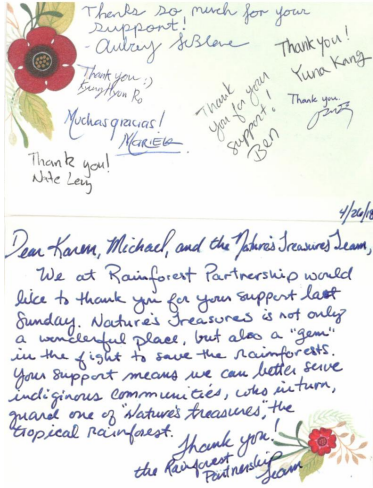 Thanks so much for your
support!
- Audrey LeBlanc
Thank you :)
Kang
Thank you!
Yuna Kang
Thank
you for your
support!
Ben
Thank you
Muchas gracias!
MARIELA
Thank you!
Nite Levy
4/26/18
Dear Karen, Michael, and the Nature's Treasures Team,
We at Rainforest Partnership would
like to thank you for your support last
Sunday. Nature's Treasures is not only
a wonderful place, but also a "gem"
in the fight to save the rainforests.
Your support means we can better serve
indiginous communities, who in turn,
guard one of "Nature's treasures," the
tropical rainforest.
Thank you!
the Rainforest
Partnership
Team